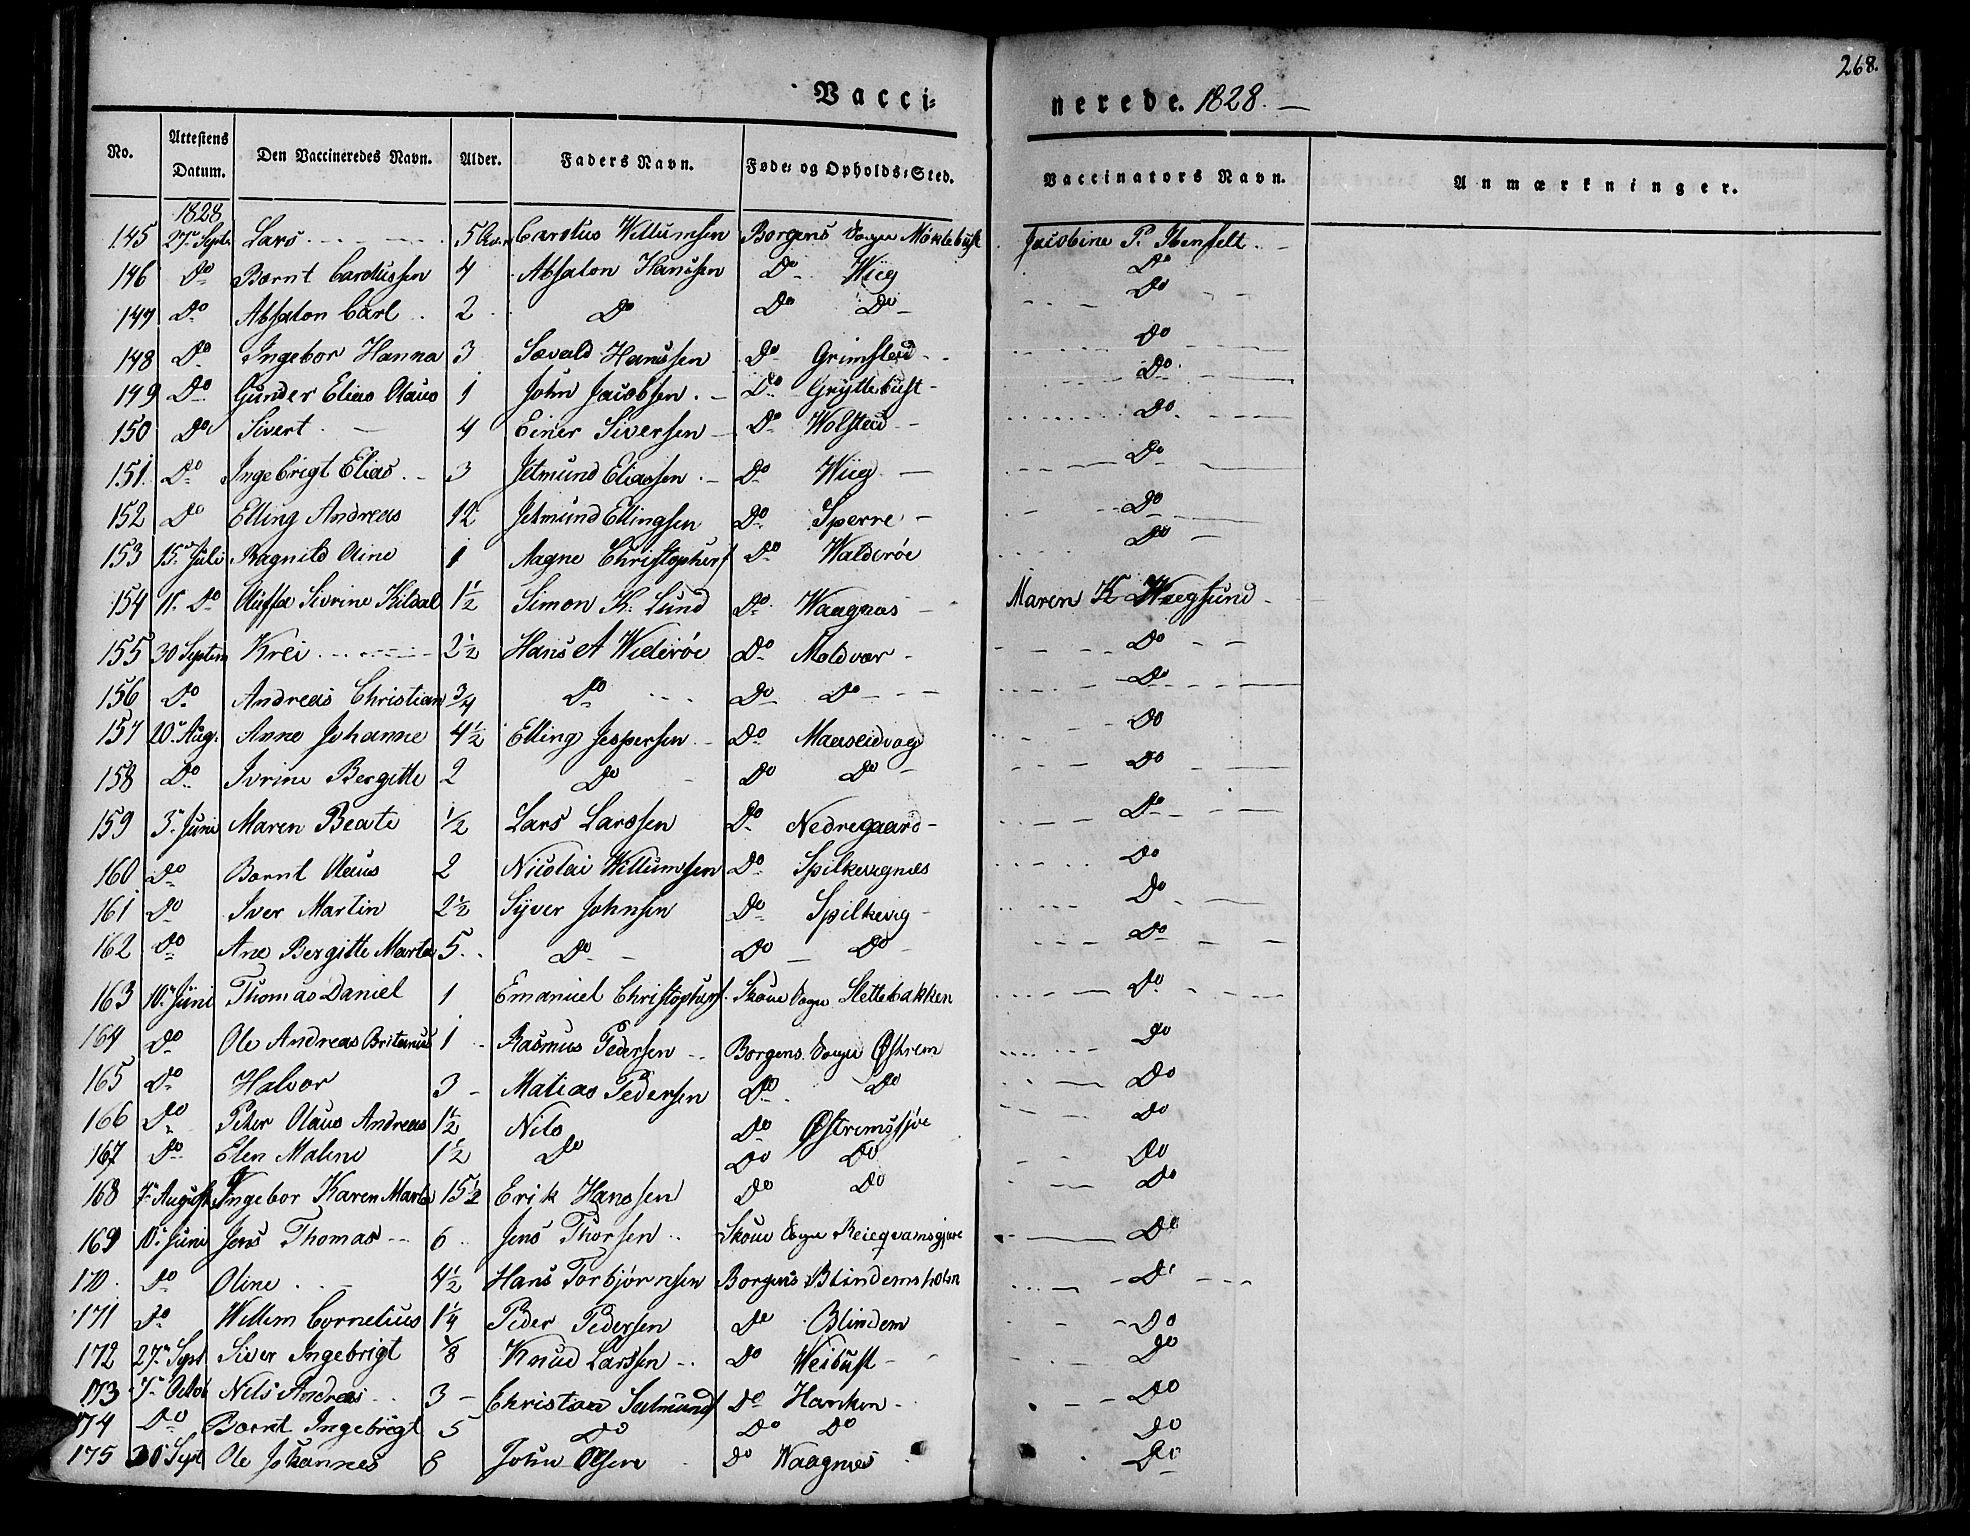 268.
Vacci-
nerede. 1828.
No. Attestens Datum. Den Vaccineredes Navn. Alder. Faders Navn. Føde- og Opholds-Sted. Vaccinators Navn. Anmærkninger.
1828
145 27. Sept. Lars 5 Carolus Willumsen Borgens Sogn Moklebust Jacobine P. Ibenfelt.
146 Do Bernt Carolussen 4 Absalon Hanssen Do Wiig Do
147 Do Absalon Carl 2 Do Do Do Do
148 Do Ingebor Hanna 3 Sævald Hanssen Do Grimstad Do
149 Do Gunder Elias Olaus 1 John Jacobsen Do Gryttebust Do
150 Do Sivert 4 Einer Siversen Do Wolstad Do
151. Do Ingebrigt Elias 3 Jetmund Eliassen Do Wiig Do
152 Do Elling Andreas 12 Jetmund Ellingsen Do Sperre Do
153 15. Juli Ragnild Oline 1 Aagne Christophers Do Walderøe Do
154 11. Do Oluffa Sivrine Kildal 1½ Simon K. Lund Do Waagnæs Maren K Weegsund
155 30 Septem Krei 2½ Hans A Widerøe Do Moldvær Do
156 Do Andreas Christian ¾ Do Do Do Do
157 20. Aug. Anne Johanne 4½ Elling Jespersen Do Maaseidvog Do
158 Do Ivrine Bergitte 2 Do Do Do Do
159 3. Juni Maren Beate ½ Lars Larssen Do Nedregaard Do
160 Do Bernt Olaus 2 Nicolai Willumsen Do Spilkevignæs Do
161 Do Iver Martin 2½ Syver Johnsen Do Spilkevig Do
162 Do Ane Bergitte Marta 5. Do Do Do Do
163 10. Juni Thomas Daniel 1 Emanuel Christophers. Skoue Sogn Slettebakken Do
164 Do Ole Andreas Britanus 1 Rasmus Pedersen Borgens Sogn Østrem Do
165 Do Halvor 3 Matias Pedersen Do Do Do
166 Do Peter Olaus Andreas 1½ Nils Do Østremssjøe Do
167 Do Elen Maline 1½ Do Do Do Do
168 7. August Ingebor Karen Marta 15½ Erik Hanssen Do Do Do
169 10. Juni Jens Thomas 6 Jens Thorsen Skoue Sogn Do
170. Do Oline 4½ Hans Torbjørnsen Borgens Blindemsholm Do
171 Do Willem Cornelius 1¼ Peder Pedersen Do Blindem Do
172 27. Sept Siver Ingebrigt ⅞ Knud Larssen Do Weibust Do
173 7. Octob Nils Andreas 3 Christian Salmunds Do Hanken Do
174 Do Bernt Ingebrigt 5 Do Do Do Do
175 30 Sept Ole Johannes 8 John Olsen Do Waagnæs Do